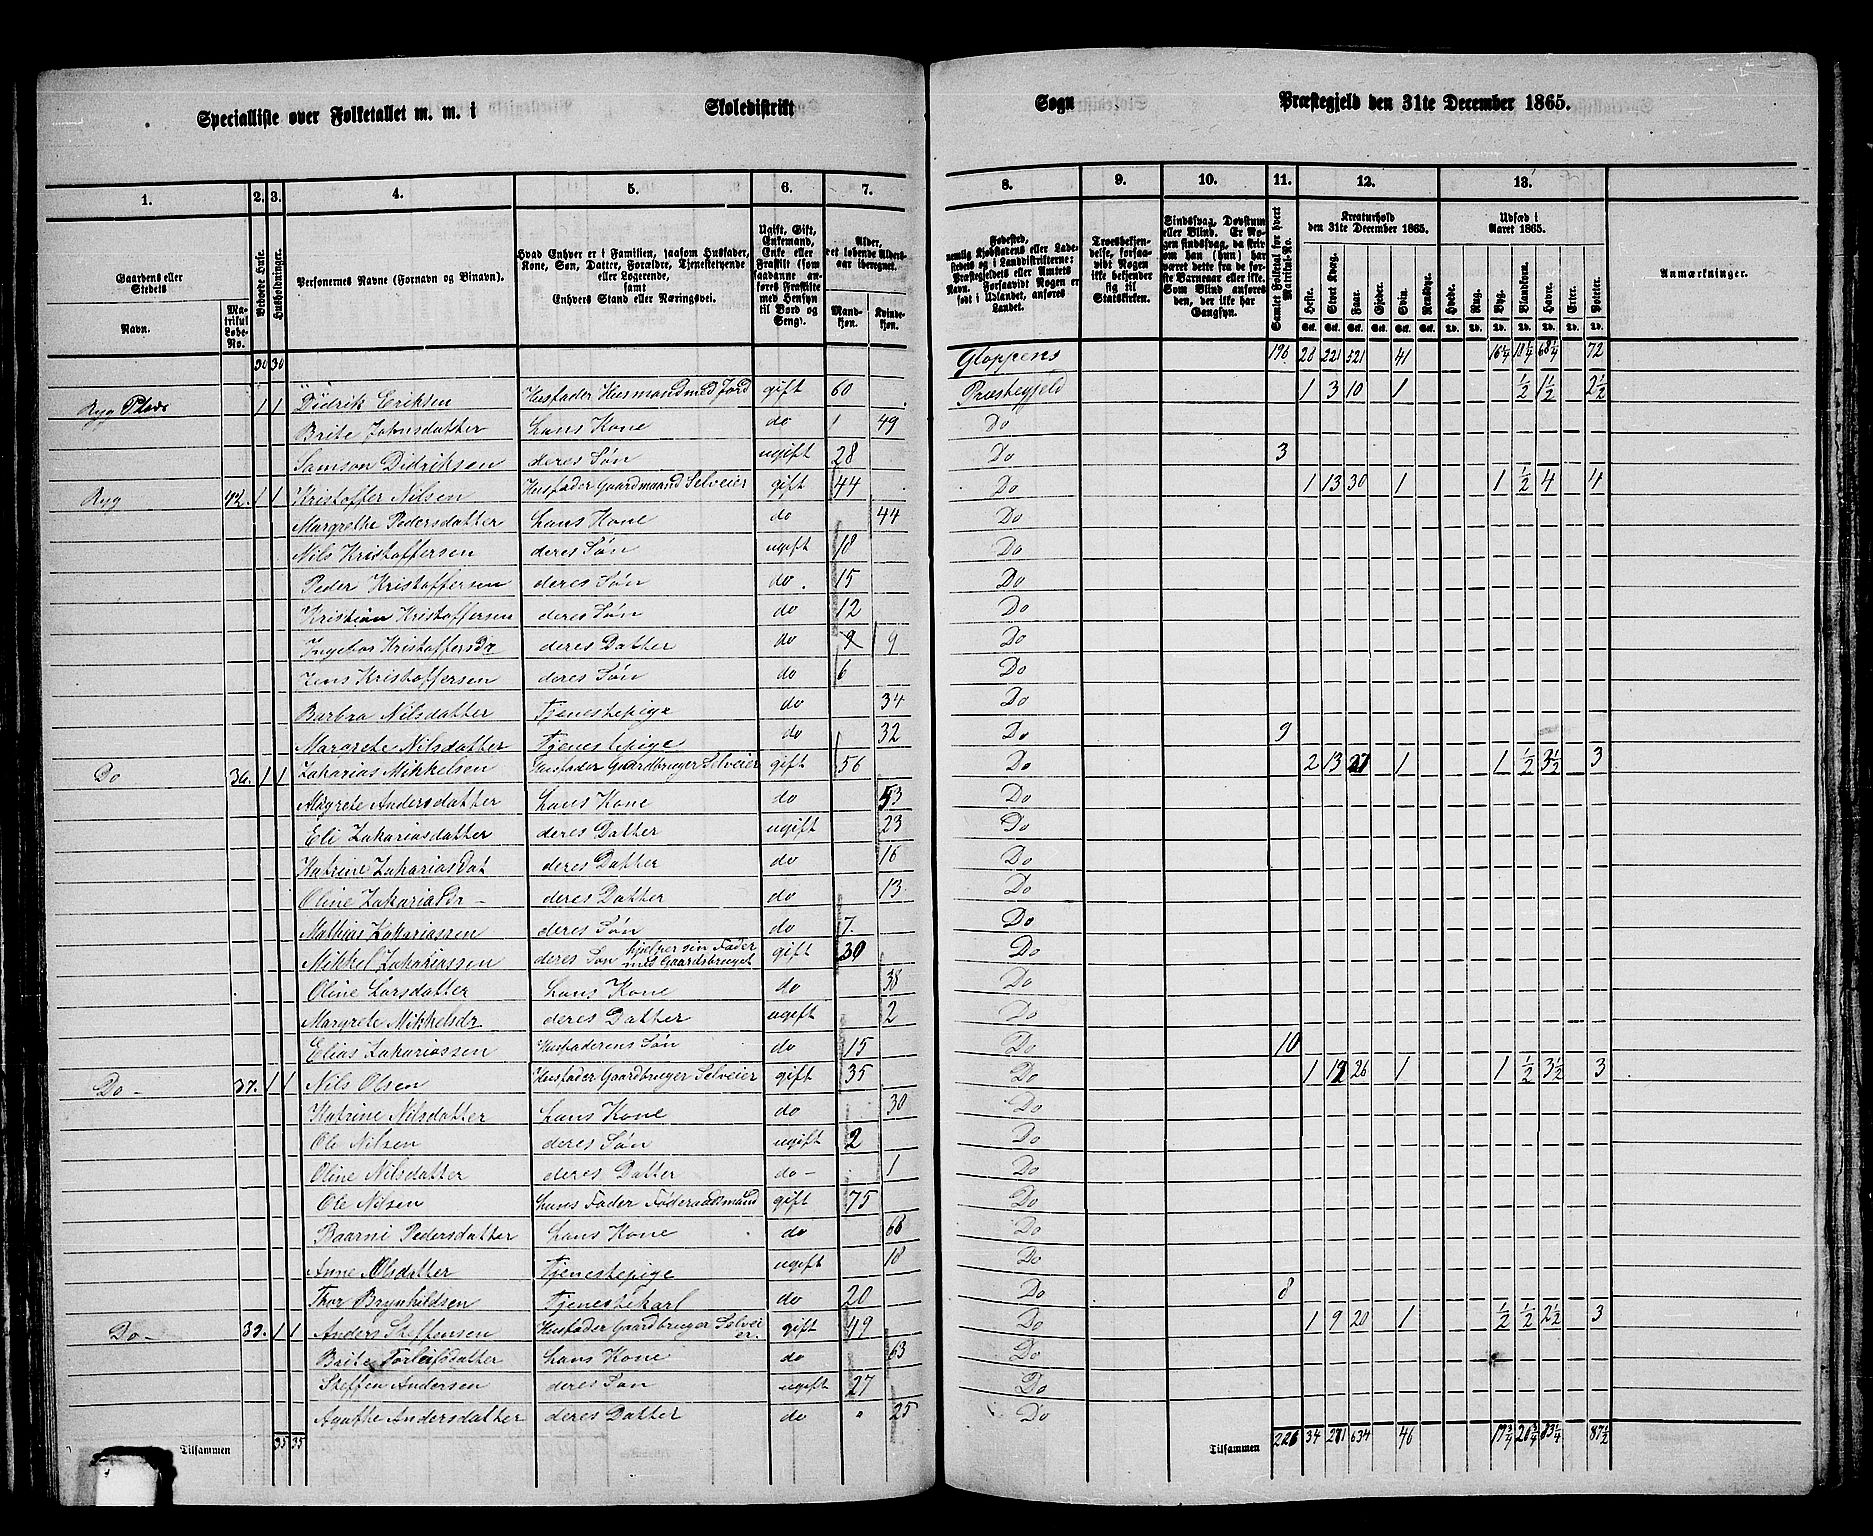 Specialliste over Folketallet m. m. i Skoledistrikt Sogn Præstegjeld den 31te December 1865.
1. 2. 3. 4. 5. 6. 7. 8. 9. 10. 11. 12. 13.
Gaardens eller Stedets
Navn. Matrikul Løbe-No.
Beboede Huse.
Husholdninger.
Personernes Navne (Fornavn og Binavn).
Hvad Enhver er i Familien, saasom Husfader, Kone, Søn, Datter, Forældre, Tjenestetyende eller Logerende, samt Enhvers Stand eller Næringsvei.
Ugift, Gift, Enkemand, Enke eller Fraskilt (som saadanne anføres Fraskilte med Hensyn til Bord og Seng).
Alder, det løbende Alders-aar iberegnet.
Mandkjøn. Kvindekjøn.
Fødested, nemlig Kjøbstadens eller Ladestedets og i Landdistrikterne: Præstegjeldets eller Amtets Navn. Forsaavidt Nogen er født i Udlandet, anføres Landet.
Troesbekjendelse, forsaavidt Nogen ikke bekjender sig til Statskirken.
Sindssvag, Døvstum eller Blind. Er Nogen sindssvag, da skrives om han (hun) har været dette fra de første Barneaar eller ikke. Som Blind anføres den, der ikke har Gangsyn.
Samlet Folketal for hvert Matrikul-No.
Kreaturhold den 31te December 1865.
Udsæd i Aaret 1865.
Anmærkninger.
Heste. Stort Kvæg. Faar. Gjeder. Svin. Rensdyr. Hvede. Rug. Byg. Blandkorn. Havre. Erter. Poteter.
30 30 Gloppens 196 28 221 521 41 16¼ 18¼ 68¼ 72
Ryg Plads 1 1 Didrik Eriksen Husfader Husmand med Jord gift 60 Præstegjeld 1 3 10 1 ½ 1½ 2½
Brite Johnsdatter hans Kone do 49 Do
Samson Didriksen deres Søn ugift 28 Do 3
Ryg 42. 1 1 Kristoffer Nilsen Husfader Gaardmaand Selveier gift 44 Do 1 13 30 1 1 ½ 4 4
Margrethe Pedersdatter hans Kone do 44 Do
Nils Kristoffersen deres Søn ugift 18 Do
Peder Kristoffersen deres Søn do 15 Do
Kristian Kristoffersen deres Søn do 12 Do
Ingebor Kristoffersdr deres Datter do 9 Do
Jens Kristoffersen deres Søn do 6 Do
Barbra Nilsdatter Tjenestepige do 34 Do
Margrete Nilsdatter Tjenestepige do 32 Do 9
Do 36. 1 1 Zakarias Mikkelsen Husfader Gaardbruger Selveier gift 56 Do 2 13 27 1 1 ½ 3½ 3
Magrete Andersdatter hans Kone do 53 Do
Eli Zakariasdatter deres Datter ugift 23 Do
Katrine Zakariasdat deres Datter do 16 Do
Oline Zakariasdr - deres Datter do 13 Do
Mathias Zakariassen deres Søn do 7. Do
Mikkel Zakariassen deres Søn hjelper sin Fader med Gaardsbruget gift 30 Do
Oline Larsdatter hans Kone do 38 Do
Margrete Mikkelsdr deres Datter ugift 2 Do
Elias Zakariassen Husfaderens Søn do 15 Do 10
Do - 37. 1 1 Nils Olsen Husfader Gaardbruger Selveier gift 35 Do 1 12 26 1 1 ½ 3½ 3
Katrine Nilsdatter hans Kone do 30 Do
Ole Nilsen deres Søn ugift 2 Do
Oline Nilsdatter deres Datter do - 1 Do
Ole Nilsen hans Fader Føderaadsmand gift 75 Do
Baarni Pedersdatter hans Kone do 66 Do
Anne Olsdatter Tjenestepige ugift 18 Do
Thor Brynhildsen Tjenestekarl do 20 Do 8
Do - 39. 1 1 Anders Steffensen Husfader Gaardbruger Selveier. gift 49 Do 1 9 20 1 ½ ½ 2½ 3
Brite Torleifsdatter hans Kone do 63 Do
Steffen Andersen deres Søn ugift 27 Do
Agathe Andersdatter deres Datter do " 25 Do
Tilsammen 35 35 Tilsammen 226 34 271 634 46 19¾ 20¾ 83¼ 87½